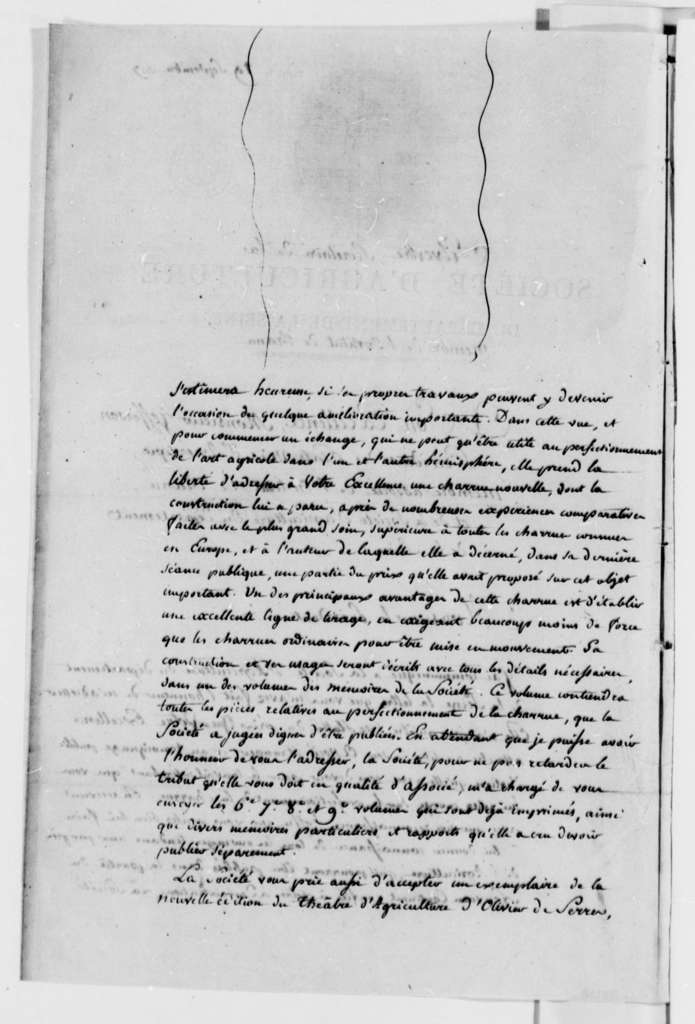 s'estimera heureuse, si ses propres travaux peuvent y devenir
l'occasion de quelque amélioration importante. Dans cette vue, et
pour commencer un échange, qui ne peut qu'être utile au perfectionnement
de l'art agricole dans l'un et l'autre hémisphère, elle prend la
liberté d'adresser à Votre Excellence une charrue nouvelle, dont la
construction lui a paru, après de nombreuses expériences comparatives
faites avec le plus grand soin, supérieure à toutes les charrues connues
en Europe, et à l'auteur de laquelle elle a décerné, dans sa dernière
séance publique, une partie du prix qu'elle avait proposé sur cet objet
important. Un des principaux avantages de cette charrue est d'établir
une excellente ligne de tirage, en exigeant beaucoup moins de force
que les charrues ordinaires pour être mise en mouvement. Sa
construction et ses usages seront décrits avec tous les détails nécessaires,
dans un des volumes des mémoires de la Société. Ce volume contiendra
toutes les pièces relatives au perfectionnement de la charrue, que la
Société a jugées dignes d'être publiées. En attendant que je puisse avoir
l'honneur de vous l'adresser, la Société, pour ne pas retarder le
tribut qu'elle vous doit en qualité d'associé, m'a chargé de vous
envoyer les 6e. 7e. 8e. et 9e. volumes qui sont déjà imprimés, ainsi
que divers mémoires particuliers et rapports qu'elle a cru devoir
publier séparément.
La Société vous prie aussi d'accepter un exemplaire de la
nouvelle édition du théâtre d'Agriculture d'Olivier de Serres,